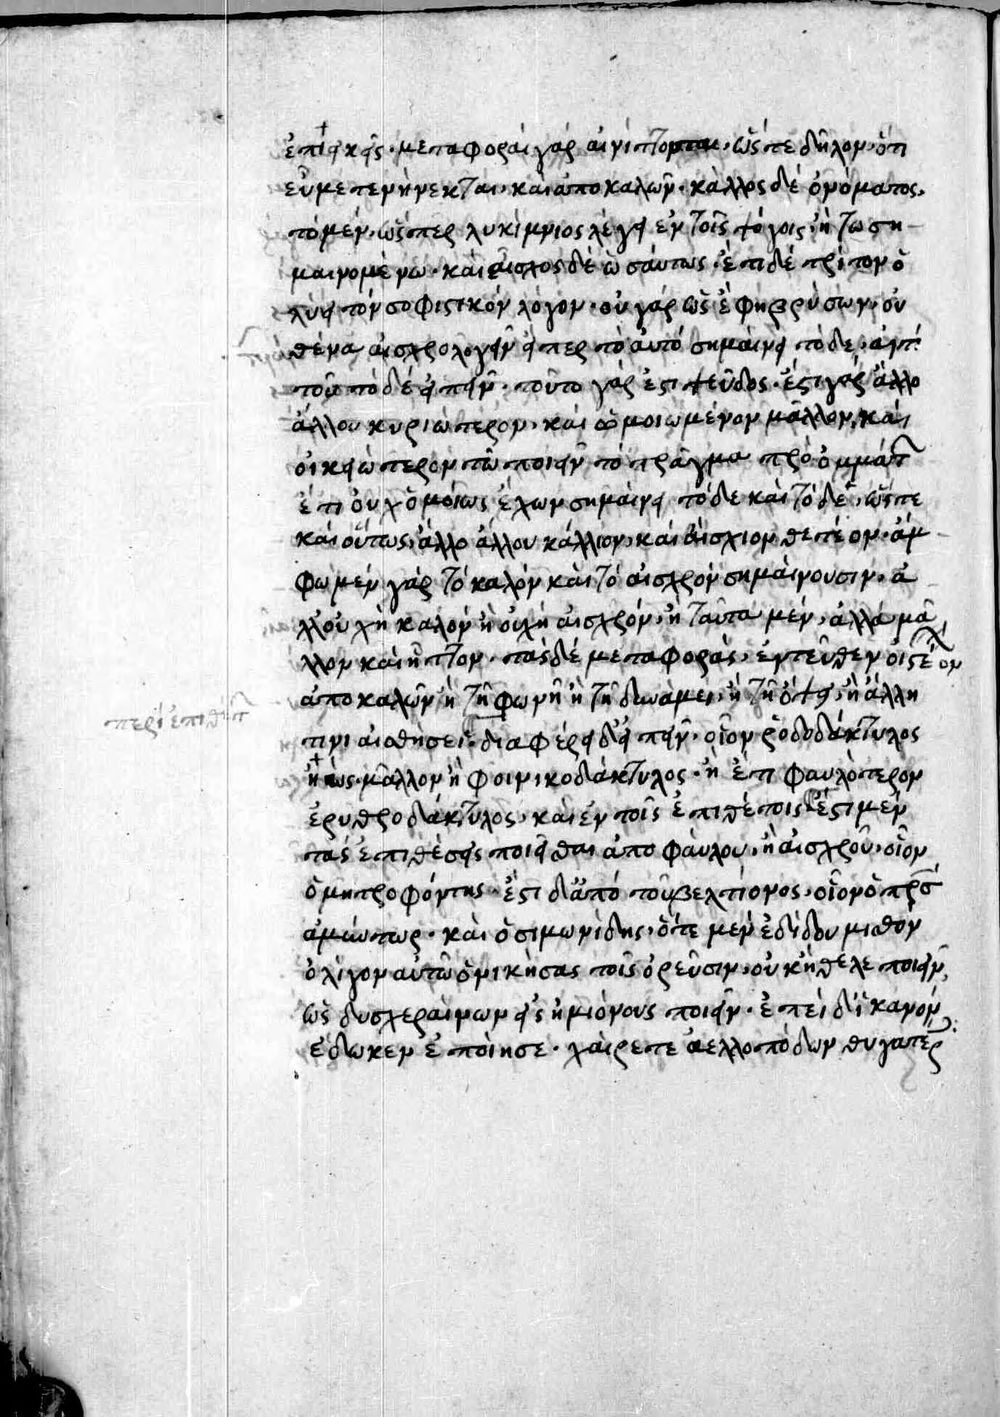 ἐπιεικεῖς· μεταφοραὶ γὰρ αἰνίττονται, ὥστε δῆλον, ὅτι
εὖ μετενήνεκται· καὶ ἀπὸ καλῶν· κάλλος δὲ ὀνόματος,
τὸ μὲν, ὥσπερ λυκίμνιος λέγει ἐν τοῖς ψόγοις, ἢ τῶ ση
μαινομένω· καὶ αἶσχος δὲ ὡσαύτως· ἔτι δὲ τρίτον ὃ
λύει τὸν σοφιστικὸν λόγον· οὐ γὰρ ὡς ἔφη βρύσων, οὐ
θένα αἰσχρολογεῖν εἴπερ τὸ αὐτὸ σημαίνει τόδε, ἀντὶ
τοῦ τόδε εἰπεῖν· τοῦτο γάρ ἐστι ψεῦδος· ἔστι γὰρ ἄλλο
ἄλλου κυριώτερον, καὶ ὁμοιωμένον μᾶλλον, καὶ
οἰκειώτερον τῶ ποιεῖν τὸ πρᾶγμα πρὸ ὀμμάτ
ἔτι οὐχ ὁμοίως ἔχων σημαίνει τόδε καὶ τόδε, ὥστε
καὶ οὕτως, ἄλλο ἄλλου κάλλιον, καὶ αἴσχιον θετέον· ἄμ
φω μὲν γὰρ τὸ καλὸν καὶ τὸ αἰσχρὸν σημαίνουσιν, ἀ
λλ' οὐχ ἧ καλὸν ἢ οὐχ ἧ αἰσχρόν, ἢ ταῦτα μὲν, ἀλλὰ μᾶ
λλον καὶ ἧττον· τὰς δὲ μεταφορὰς, ἐντεῦθεν οἰστέον
ἀπὸ καλῶν ἢ τῆ φωνῆ ἢ τῆ δυνάμει, ἢ τῆ ὄψει, ἢ ἄλλη
τινὶ αἰσθήσει· διαφέρει δ' εἰπεῖν· οἷον ῥοδοδάκτυλος
ἠὼς μᾶλλον ἢ φοινικοδάκτυλος· ἢ ἔτι φαυλότερον
ἐρυθροδάκτυλος· καὶ ἐν τοῖς ἐπιθέτοις ἔστι μὲν
τὰς ἐπιθέσεις ποιεῖσθαι ἀπὸ φαύλου, ἢ αἰσχροῦ· οἷον
ὁ μητροφόντης· ἔστι δ' ἀπὸ τοῦ βελτίονος, οἷον ὁ πρσ
περὶ ἐπιθέτ
ἀμύντωρ· καὶ ὁ σιμωνίδης, ὅτε μὲν ἐδίδου μισθὸν
ὀλίγον αὐτῶ ὁ νικήσας τοῖς ὀρεῦσιν, οὐκ ἤθελε ποιεῖν
ὡς δυσχεραίνων εἰς ἡμιόνους ποιεῖν· ἐπεὶ δ' ἱκανὸν
ἔδωκεν ἐποίησε· χαίρετε ἀελλοπόδων θυγατέρ: